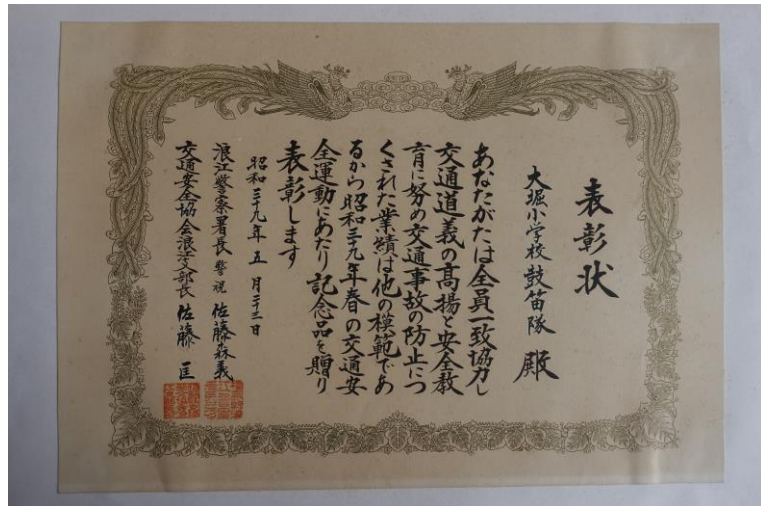 表彰状
大堀小学校鼓笛隊 殿
あなたがたは全員一致協力し
交通道義の高揚と安全教
育に努め交通事故の防止につ
くされた業績は他の模範であ
るから昭和三十九年春の交通安
全運動にあたり記念品を贈り
表彰します
昭和三十九年五月二十三日
浪江警察署長 警視 佐藤森義
交通安全協会浪江支部長 佐藤 匡